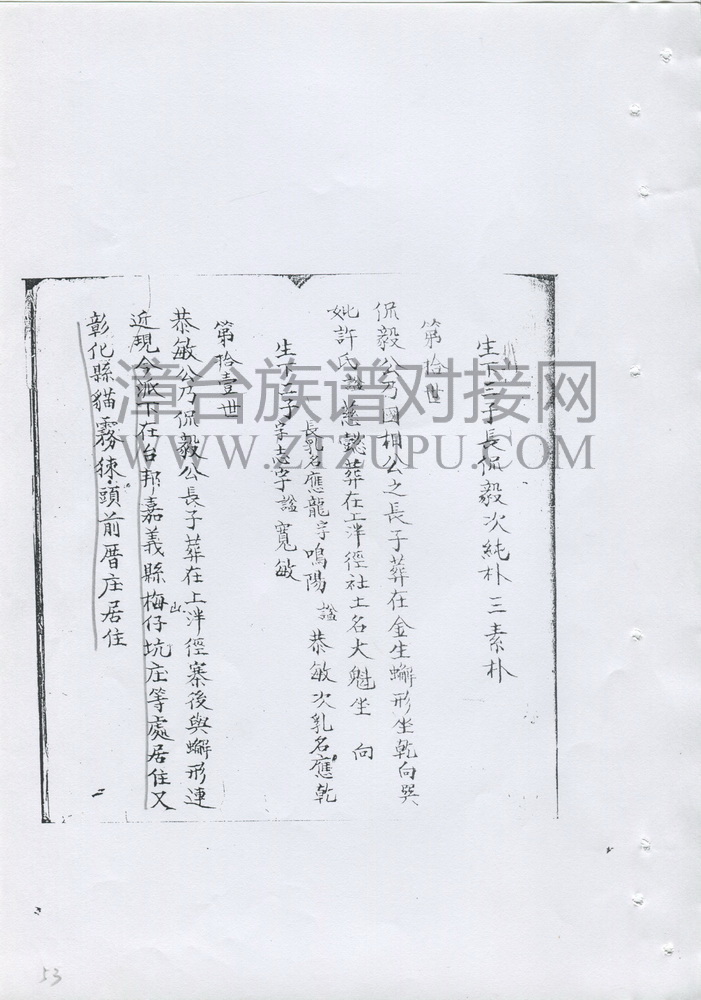 生下三子長侃毅次純朴三素朴
第拾世
侃毅公乃國相公之長子葬在金生蠏形坐乾向巽
妣許氏謚慈懿葬在上泮徑社土名大魁坐 向
生下二子長乳名應龍字鳴陽謚恭敏次乳名應乾
字志宇謚寬敏
第拾壹世
恭敏公乃侃毅公長子葬在上泮徑寨後與蠏形連
近現今派下在台邦嘉義縣梅仔坑庄等處居住又
彰化縣貓霧揀頭前厝庄居住
漳台族谱对接网
WWW.ZTZUPU.COM
53